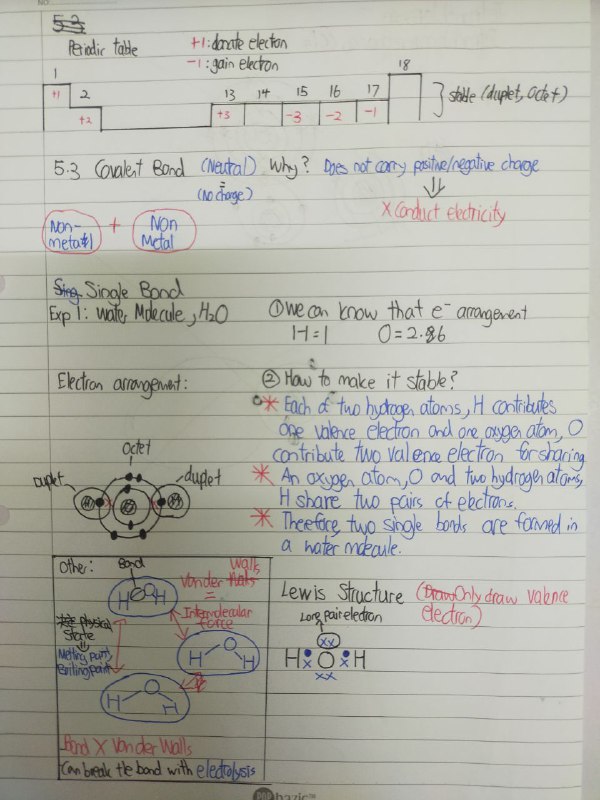 5.2
Periodic table +1: donate electron
-1: gain electron
1 18
+1 2 13 14 15 16 17 stable (duplet, Octet)
+2 +3 -3 -2 -1
5.3 Covalent Bond (Neutral) Why? Does not carry positive/negative charge
=
(No charge) ⇓
X Conduct electricity
Non-metal + Non Metal
Single Bond
Exp 1: Water Molecule, H2O ① We can know that e⁻ arrangement
H=1 O=2.6
Electron arrangement: ② How to make it stable?
* Each of two hydrogen atoms, H contributes
one valence electron and one oxygen atom, O
contribute two valence electron for sharing
* An oxygen atom, O and two hydrogen atoms,
H share two pairs of electrons.
* Therefore, two single bonds are formed in
a water molecule.
Octet
Duplet duplet
Other: Bond
Van der Walls
=
Intermolecular
force
physical
state
⇓
Melting point
Boiling point
H O H
H O H
H O H
Bond X Van der Walls
Can break the bond with electrolysis
Lewis Structure (Only draw valence
electron)
Lone pair electron
xx
H • x O • x H
xx
bazic